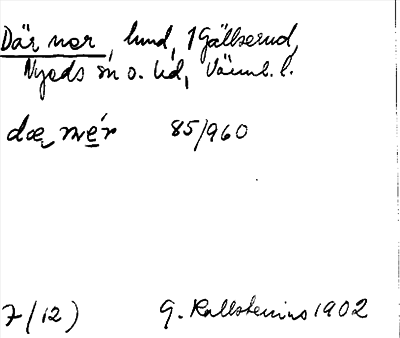 Där ner, lund, 1 Gällserud,
Nyeds sn o. hd, Värml. l.
dæ, nér 85/960
7/12) G. Kallstenius 1902